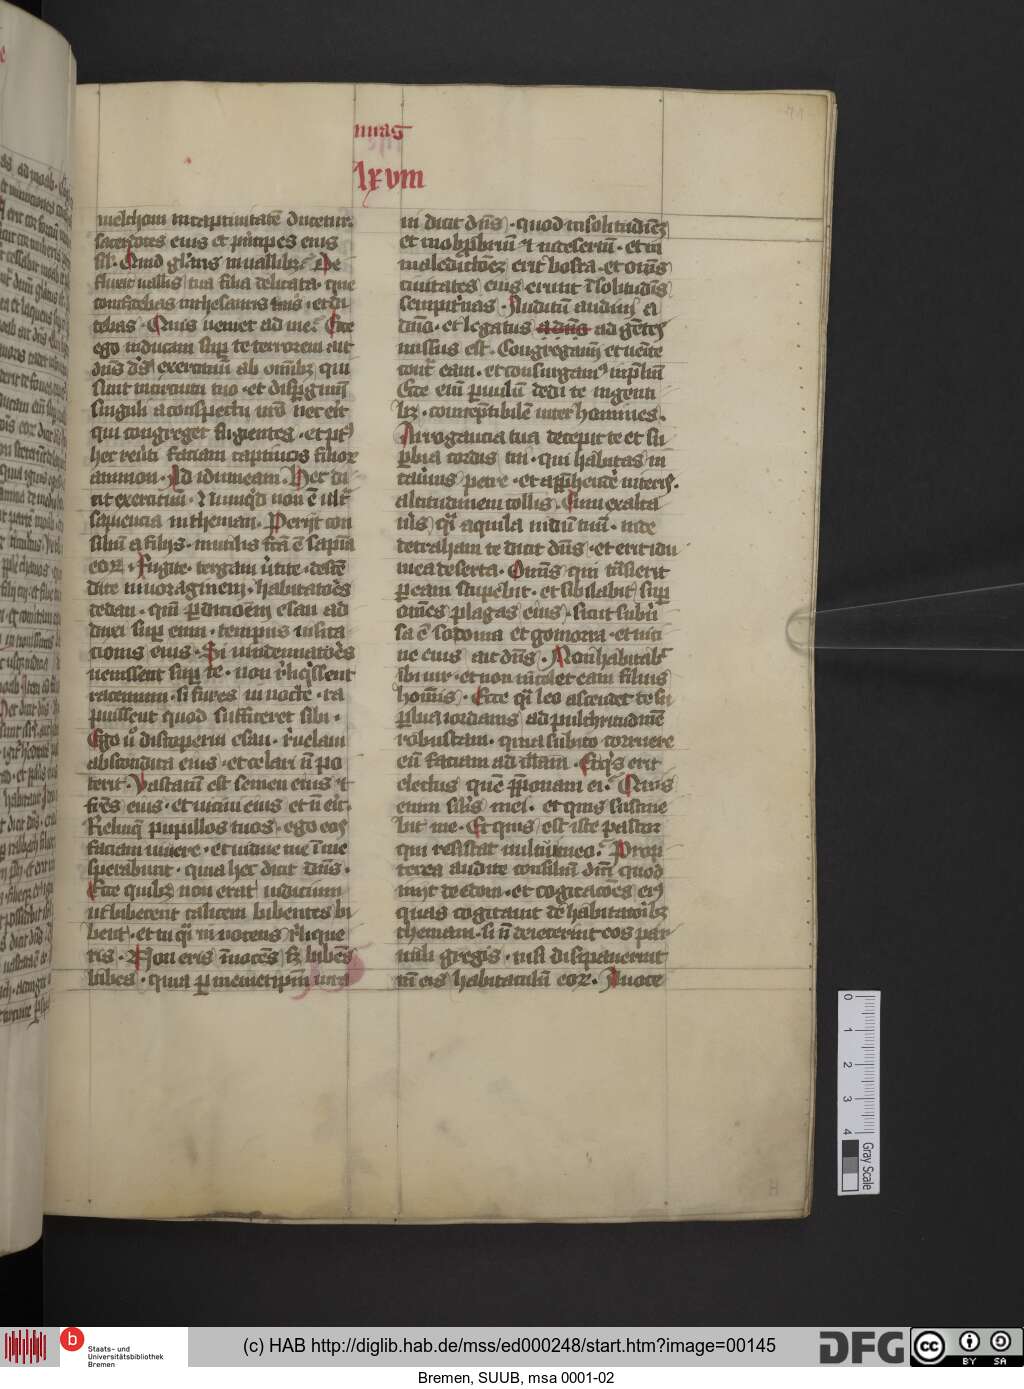 mias
lxviii
melchom in captiuitatē ducetur.
sacerdotes eius et pͥncipes eius
sil'. Quid gl'aris in uallibꝫ. De
fluxit uallis tua filia delicata. que
confidebas in thesauris tuis. et di
cebas. Quis ueniet ad me. Ecce
ego inducam suꝑ te terrorem ait
dūs ds̄ exercituū ab omībꝫ qui
sunt in circuitu tuo. et disꝑgimī
singuli a conspectu urō nec erit
qui congreget fugientes. et pꝰ
hec reuti faciam captiuos filior
ammon. Ad idumeam. Hec di
cit exercituū. Nūquid non ē ult͛
sapiencia in theman. Perijt con
siliū a filijs. inutilis fcā ē sapīa
eoꝝ. Fugite. tergam ūtite. descē
dite in uoraginem. habitatoēs
dedan. qm̄ ꝑdicioēm esau ad
duxi suꝑ eum. tempus uisita
cionis eius. Si uindemiatoēs
uenissent suꝑ te. non rͥliqͥssent
racemum. si fures in nocte. ra
puissent quod sufficeret sibi.
Ego ū discoperui esau. rͥuelaui
abscondita eius. et celari n̄ po
terit. Vastatū est semen eius ⁊
frēs eius. et uicini eius et n̄ eit.
Relinq̄ pupillos tuos. ego eos
faciam uiuere. et uidue tue ī me
sperabunt. quia hec dicit dūs.
Ecce quibꝫ non erat iudicium
ut biberent calicem bibentes bi
bent. et tu qͥ innocens rͥlique
ris. Non eris īnocēs sꝫ bibēs
bibes. quia ꝑ memetipm̄ iura
ui dicit dūs. quod in solitudiēꝫ
et in obꝑbriū ⁊ in desertū. et in
maledictōeꝫ erit bosra. et om̄s
ciuitates eius erunt ī solitudīs
sempiternas. Auditum audiui a
dūo. et legatus a dūo ad gētes
missus est. Congregamī et uēite
cont͛ eam. et consurgamꝰ in pͣliū
Ecce eni ꝑuulū dedi te in genti
bꝫ. contēptibilē inter homines.
Arrogancia tua decepit te et su
ꝑbia cordis tui. qui habitas in
cauͥnis petre. et appͥhendē niteris.
altitudinem collis. Cum exalta
uͥis qͣi aquila nidū tuū. inde
detraham te dicit dūs. et erit idu
mea deserta. Om̄is qui tͣnsierit
ꝑ eam stupebit. et sibilabit suꝑ
om̄es plagas eius. sicut subuͥ
sa ē sodoma et gomorra. et uici
ne eius ait dūs. Non habitabͭ
ibi uir. et non incolet eam filius
homīs. Ecce qͣi leo ascendet te su
ꝑbia iordanis ad pulchritudinē
robustam. quia subito currere
eū faciam ad illam. Et qͥs erit
electus quē ppͦonam ei. Quis
enim silͥis mei. et quis sustine
bit me. Et quis est iste pastor
qui resistat uultui meo. Prop
terea audite consiliū dn̄i quod
inijt de edom. et cogitacōes eiꝰ
quas cogitauit de habitatoībꝫ
theman. si n̄ deiecerint eos par
uuli gregis. nisi dissipauerint
cū eis habitaculū eoꝝ. A uoce
Gray Scale
0
1
2
3
4
b Staats- und
Universitätsbibliothek
Bremen
(c) HAB http://diglib.hab.de/mss/ed000248/start.htm?image=00145
DFG
cc BY SA
Bremen, SUUB, msa 0001-02